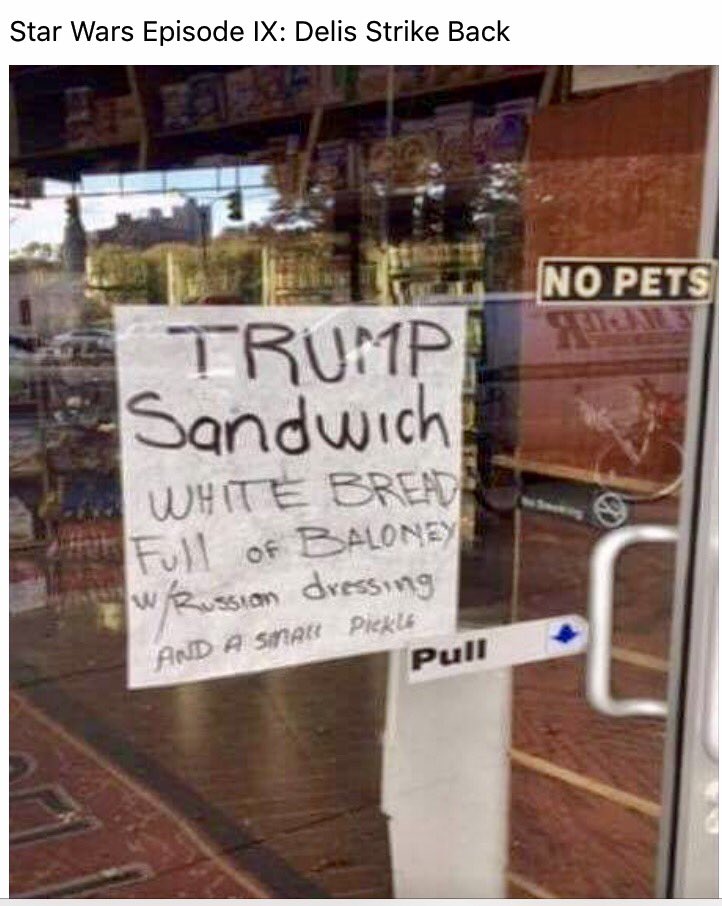 Star Wars Episode IX: Delis Strike Back
NO PETS
TRUMP
Sandwich
WHITE BREAD
Full of BALONEY
w/Russian dressing
AND A small Pickle
No Smoking
Pull